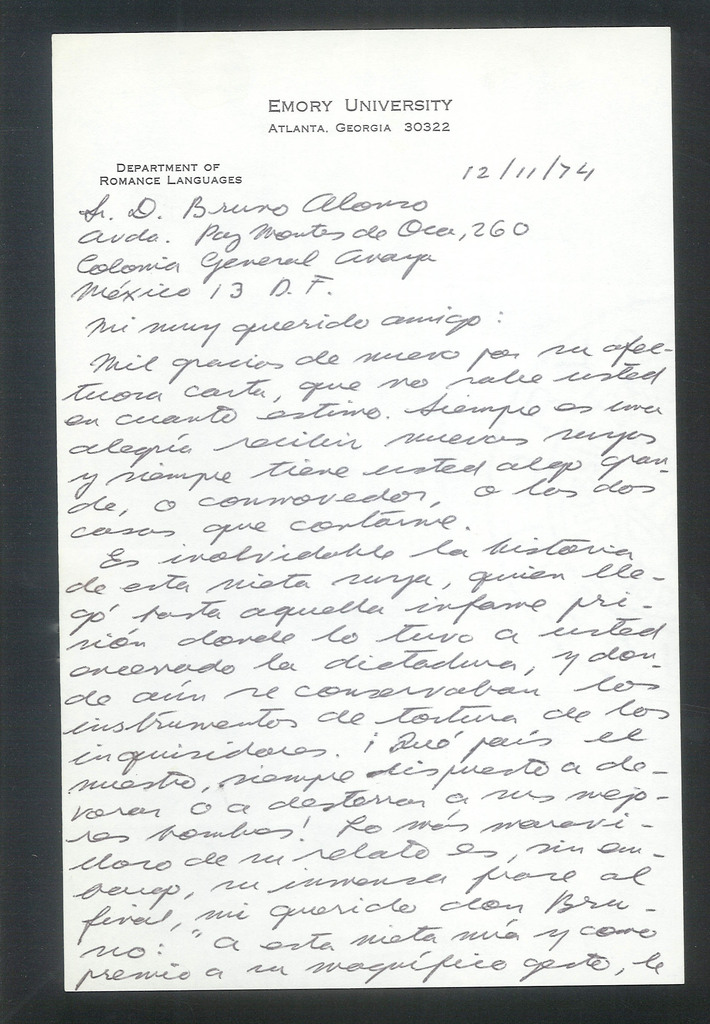 EMORY UNIVERSITY
ATLANTA, GEORGIA 30322
DEPARTMENT OF
ROMANCE LANGUAGES
12/11/74
Sr. D. Bruno Alonso
Avda. Paz Montes de Oca, 260
Colonia General Anaya
México 13 D.F.
Mi muy querido amigo:
Mil gracias de nuevo por su afec-
tuosa carta, que no sabe usted
en cuanto estimo. Siempre es una
alegría recibir nuevas suyas
y siempre tiene usted algo gran-
de, o conmovedor, o las dos
cosas que contarme.
Es inolvidable la historia
de esta nieta suya, quien lle-
gó hasta aquella infame pri-
sión donde lo tuvo a usted
encerrado la dictadura, y don-
de aún se conservaban los
instrumentos de tortura de los
inquisidores. ¡Qué país el
nuestro, siempre dispuesto a de-
vorar o a desterrar a sus mejo-
res hombres! Lo más maravi-
lloso de su relato es, sin em-
bargo, su inmensa frase al
final, mi querido don Bru-
no: "A esta nieta mía y como
premio a su magnífico gesto, le